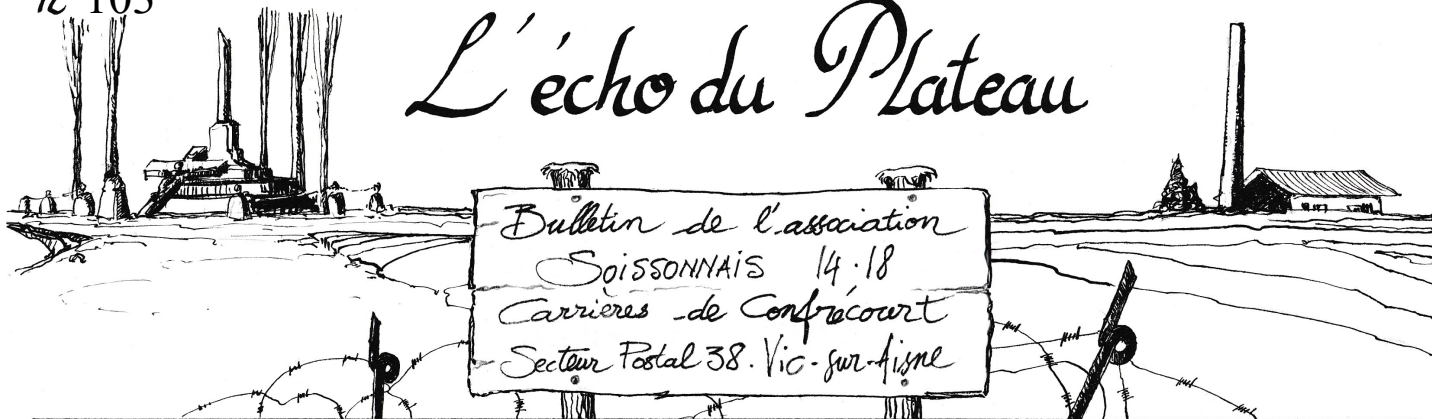 n° 103
L'écho du Plateau
Bulletin de l'association
SOISSONNAIS 14.18
Carrières de Confrécourt
Secteur Postal 38. Vic-sur-Aisne